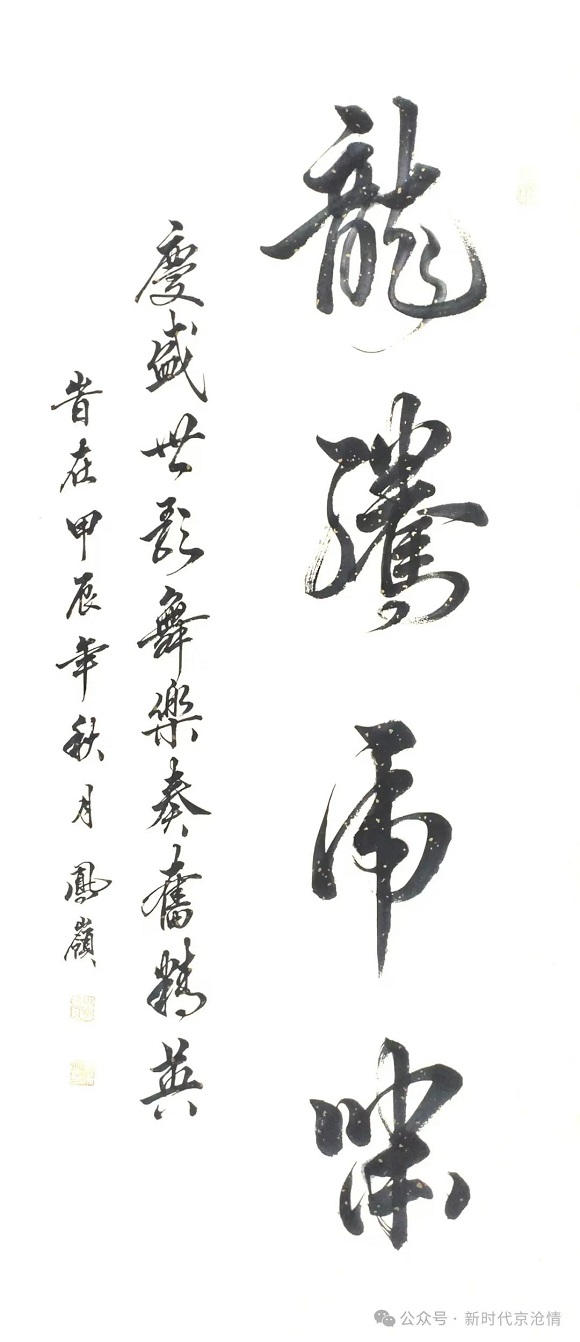 龍騰虎嘯
慶盛世歌舞樂奏奮精英
時在甲辰年秋月鳳嶺
公众号·新时代京沧情